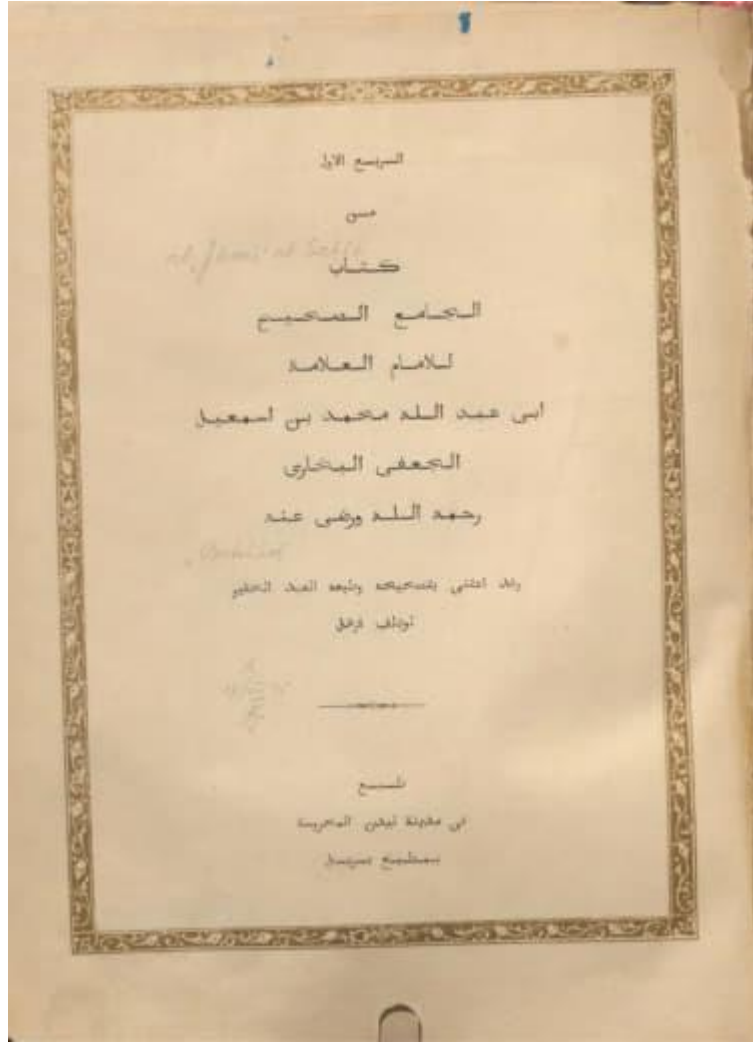 الربع الاول
من
كتاب
الجامع الصحيح
للامام العلامة
ابى عبد الله محمد بن اسمعيل
الجعفى البخارى
رحمه الله ورضى عنه
وقد اعتنى بتصحيحه وطبعه العبد الحقير
لودلف قرهل
طبع
فى مدينة ليدن المحروسة
بمطبع بريل
al Jami' al Sahih